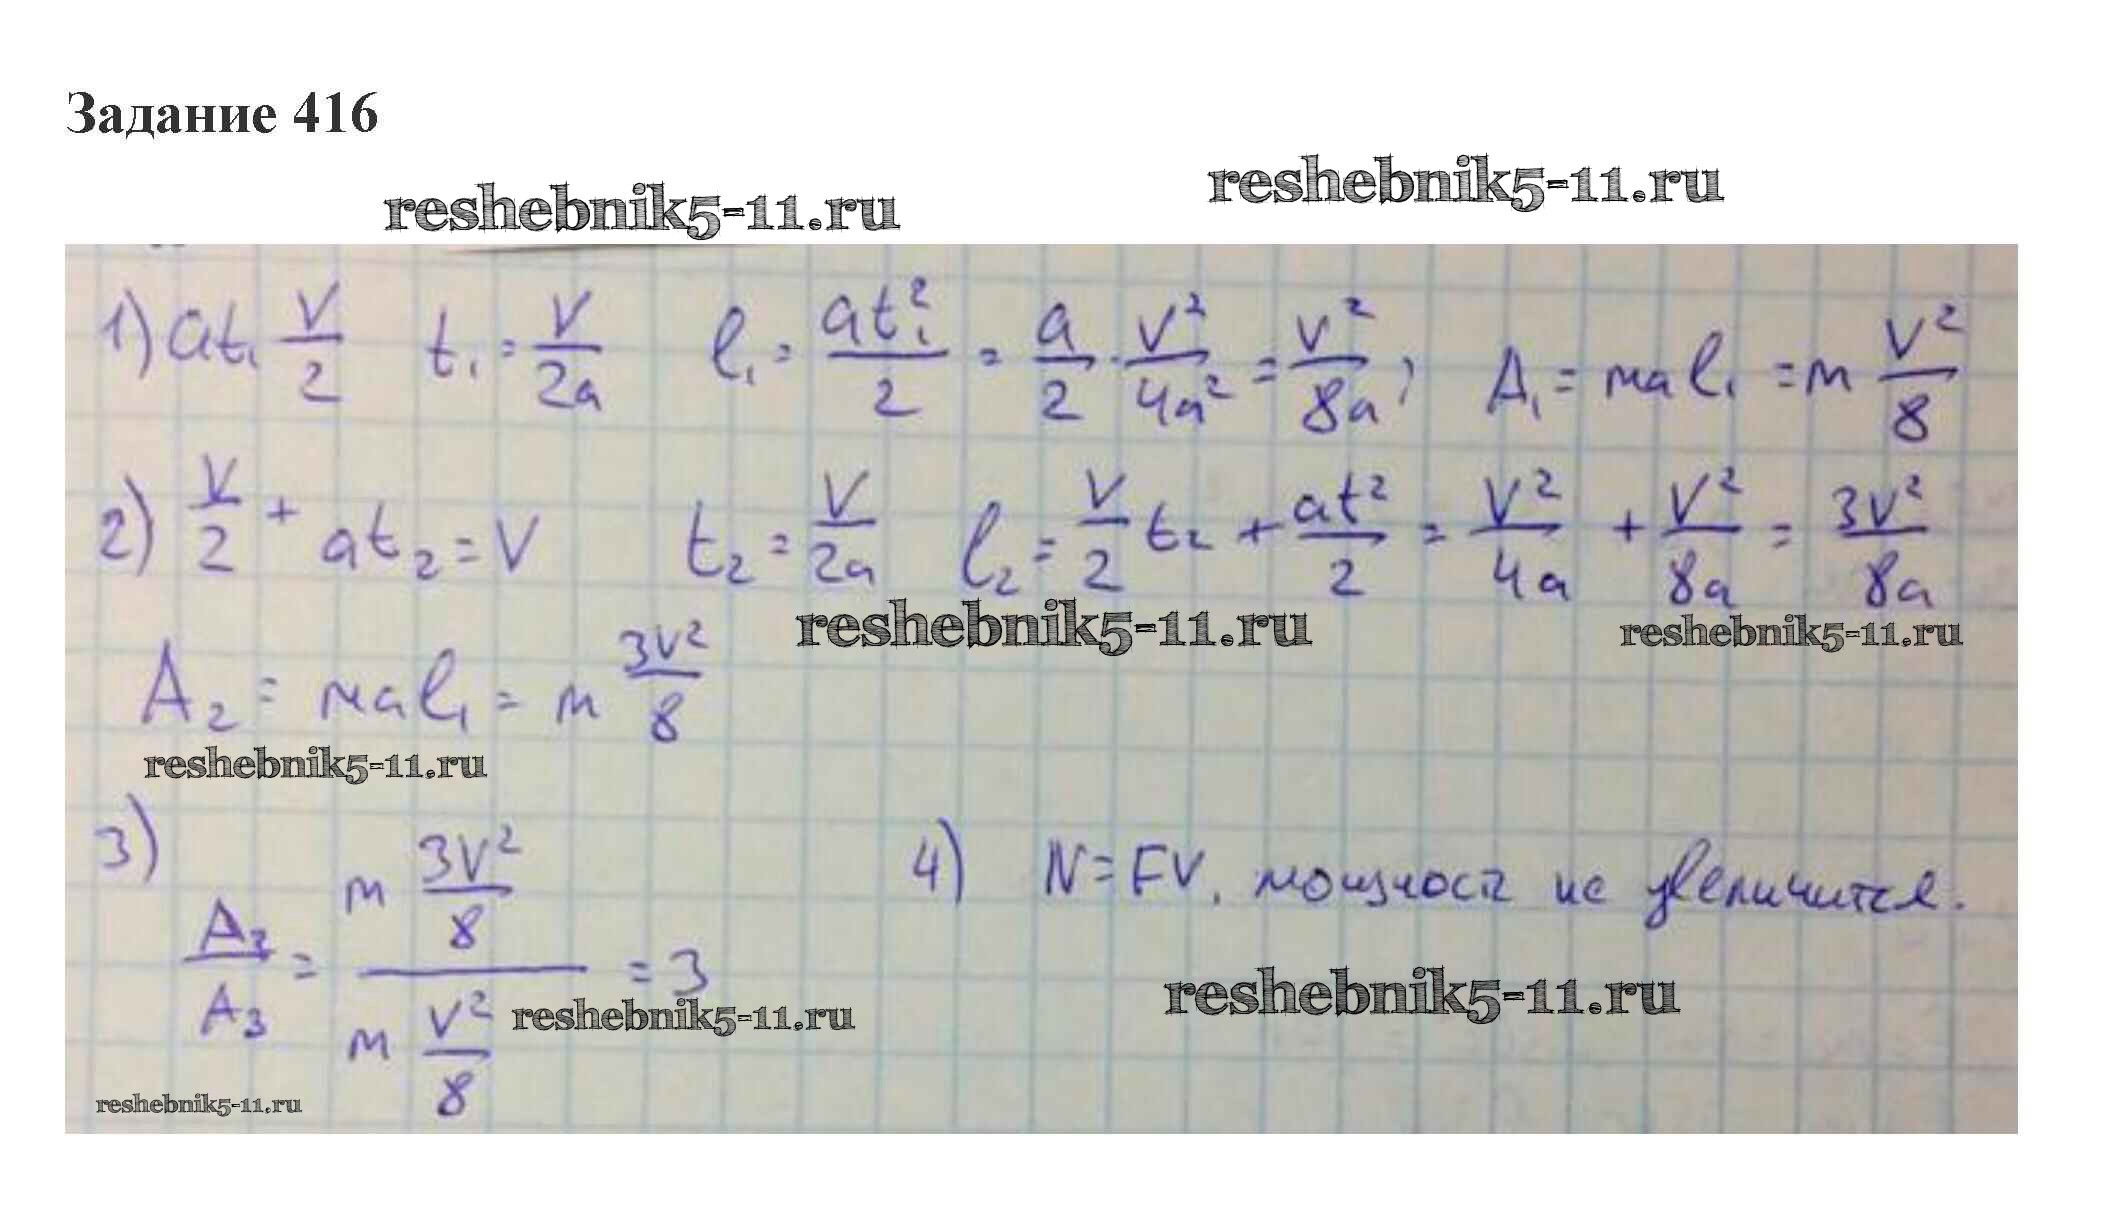 Задание 416
reshebnik5-11.ru reshebnik5-11.ru
1) at₁ V/2 t₁ = V/2a l₁ = at₁²/2 = a/2 · V²/4a² = V²/8a; A₁ = mal₁ = m V²/8
2) V/2 + at₂ = V t₂ = V/2a l₂ = V/2 t₂ + at²/2 = V²/4a + V²/8a = 3V²/8a
reshebnik5-11.ru reshebnik5-11.ru
A₂ = mal₁ = m 3V²/8
reshebnik5-11.ru
3) A₃/A₃ = m 3V²/8 / m V²/8 = 3
4) N = FV, мощность не увеличится.
reshebnik5-11.ru reshebnik5-11.ru
reshebnik5-11.ru